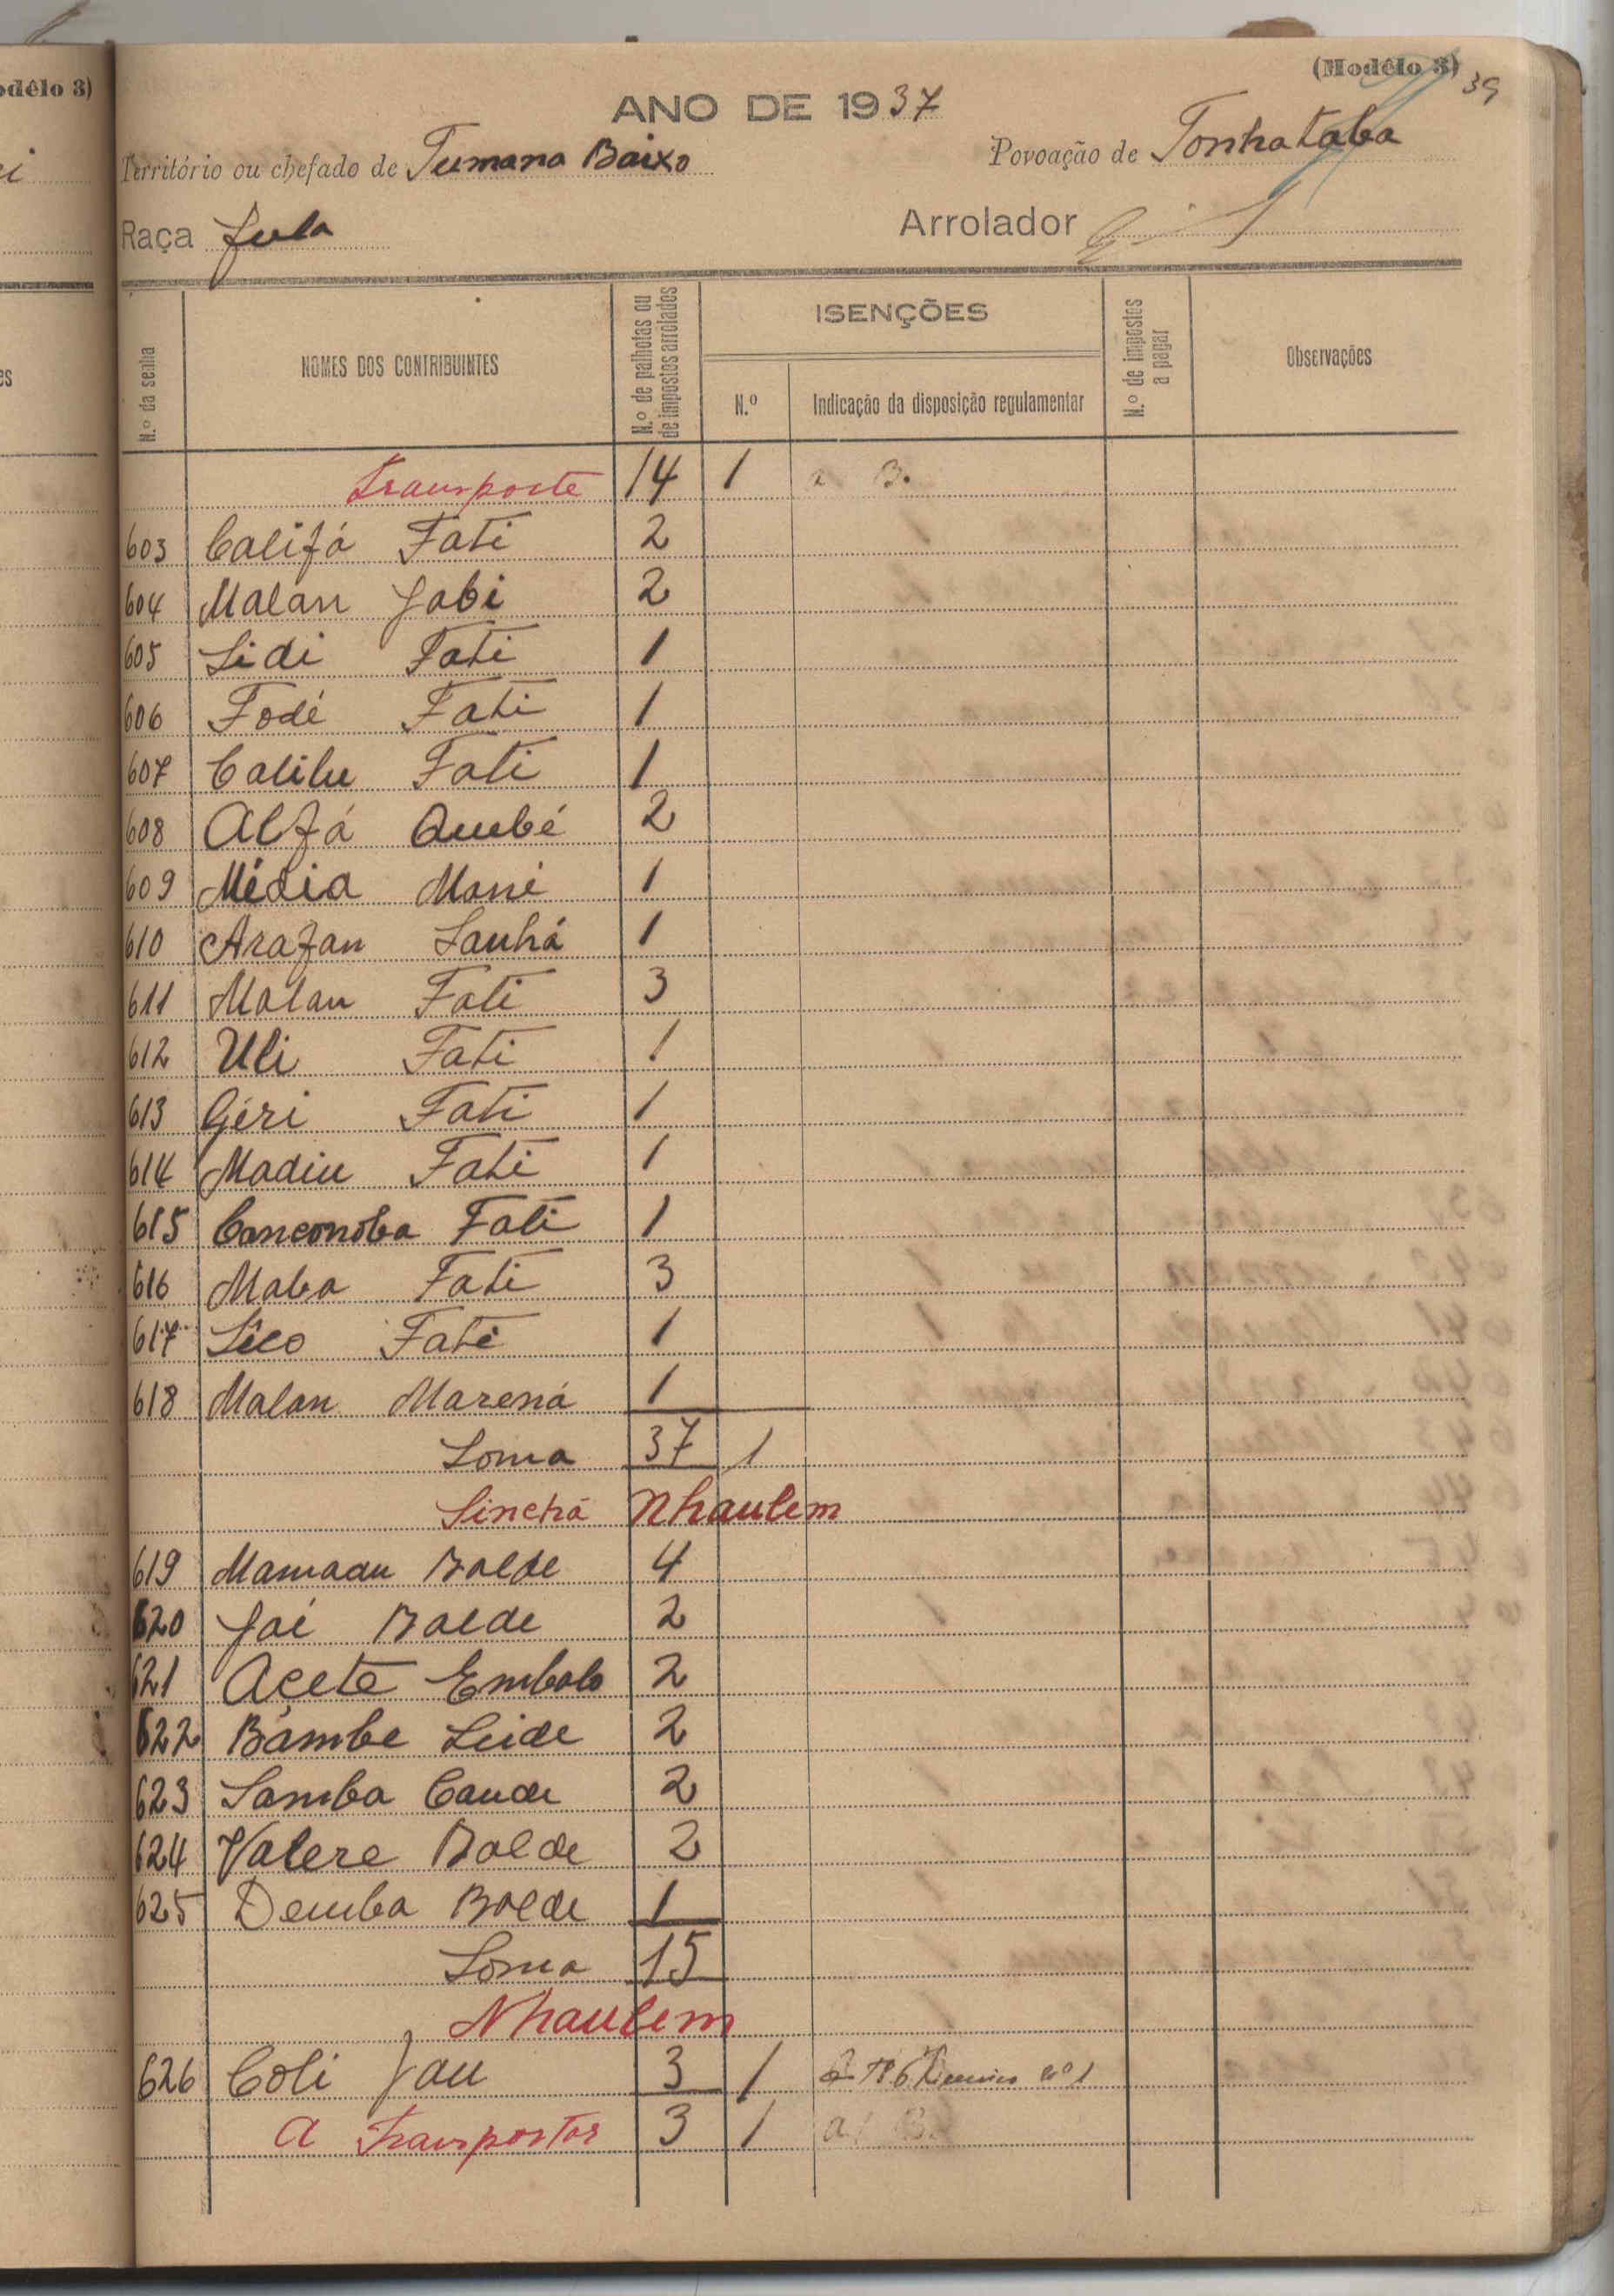 odêlo 3)
(Modêlo 3) 39
ANO DE 1937
Território ou chefado de Tumana Baixo
Povoação de Tonhataba
Raça fula
Arrolador
N.º da senha
NOMES DOS CONTRIBUINTES
N.º de palhotas ou de impostos arrolados
ISENÇÕES
N.º
Indicação da disposição regulamentar
N.º de impostos a pagar
Observações
Transporte 14 1 a B.
603 Califá Fati 2
604 Malan Jabi 2
605 Sidi Fati 1
606 Fodé Fati 1
607 Calilu Fati 1
608 Alfá Quebé 2
609 Média Mané 1
610 Arafan Sanhá 1
611 Malan Fati 3
612 Uli Fati 1
613 Géri Fati 1
614 Madiu Fati 1
615 Canconoba Fati 1
616 Maba Fati 3
617 Sêco Fati 1
618 Malan Marená 1
Soma 37 1
Sinchã Nhaulem
619 Mamadu Balde 4
620 Jai Balde 2
621 Açete Embalo 2
622 Bámbe Seide 2
623 Samba Cande 2
624 Valere Balde 2
625 Demba Balde 1
Soma 15
Nhaulem
626 Coli Jau 3 1 nº 1
A Transportar 3 1 a) B.